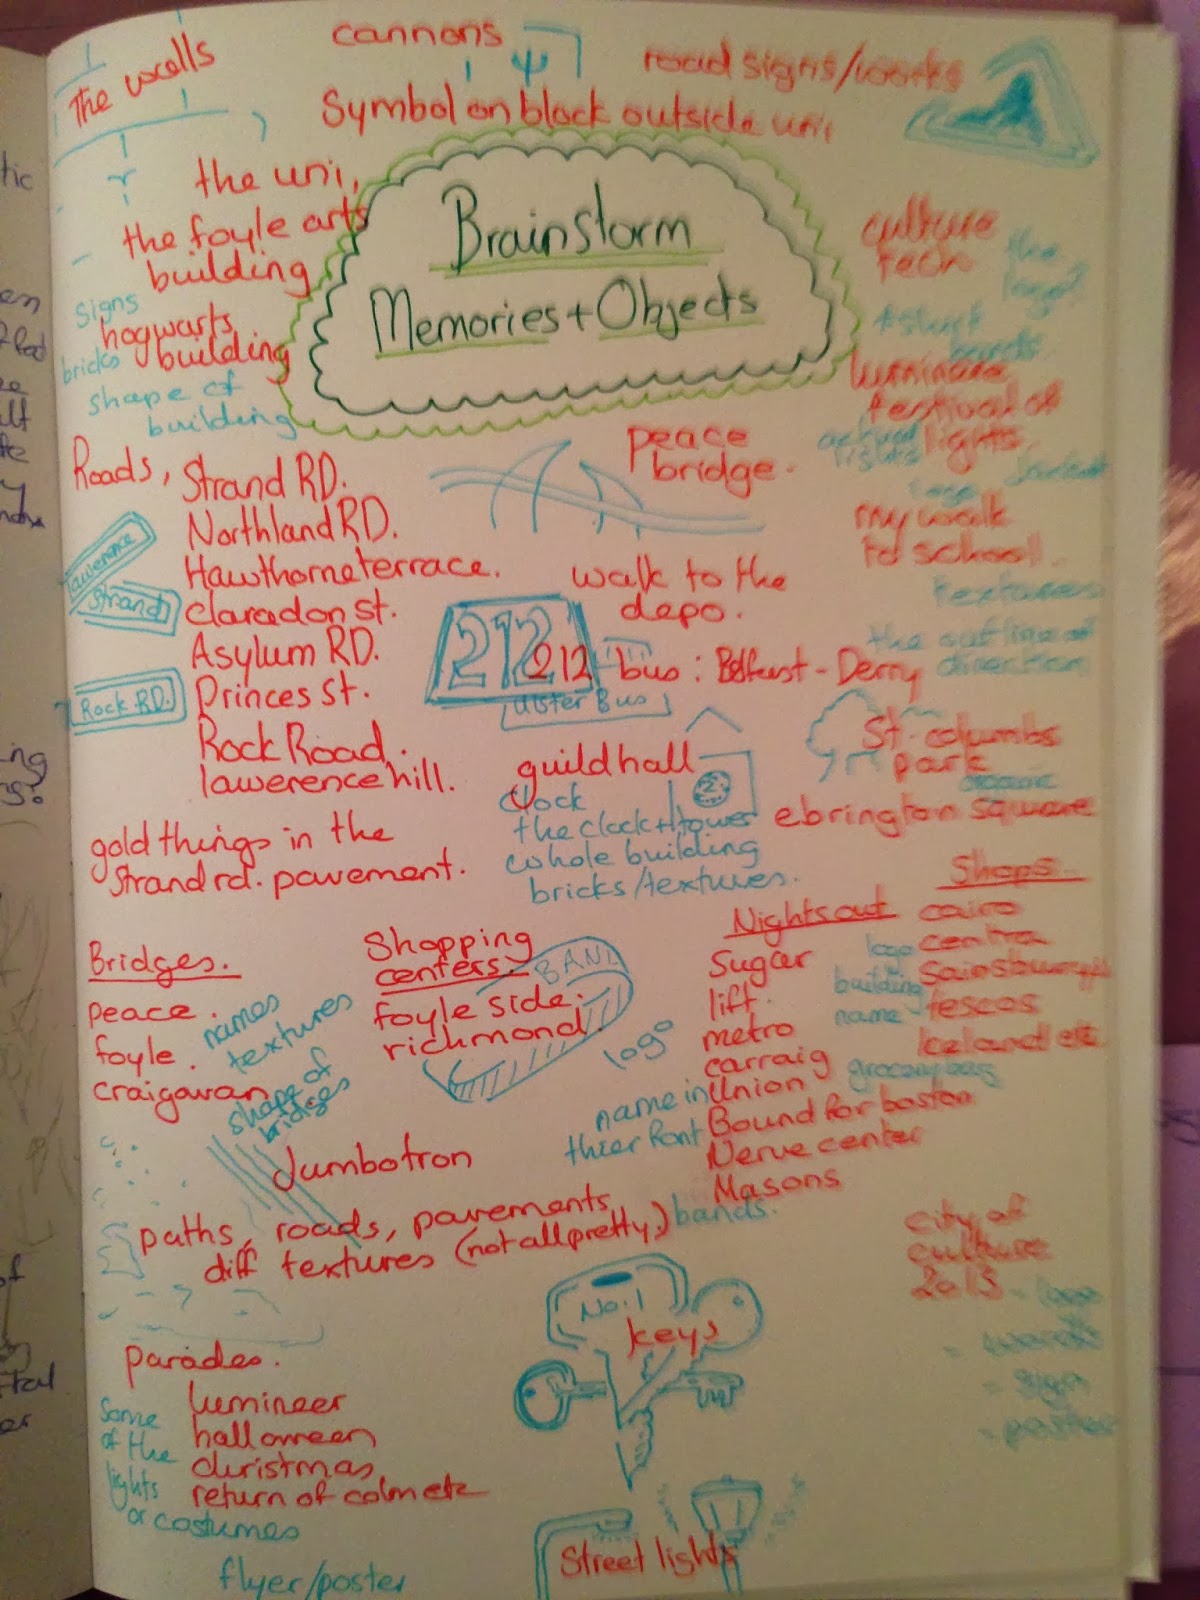 The walls
cannons
road signs/works
Symbol on block outside uni
the uni,
the foyle arts
building
signs
hogwarts
building
bricks
shape of
building
Brainstorm
Memories + Objects
culture
tech
the
t-shirt
luminaire
festival of
lights
peace
bridge.
my walk
to school.
textures
the outline of
direction
Roads, Strand RD.
Northland RD.
Hawthorne terrace.
claradon st.
Asylum RD.
Princes St.
Rock Road.
lawerence hill.
lawerence
Strand
Rock RD.
walk to the
depo.
212
212 bus: Belfast - Derry
Ulster Bus
St. columbs
park
guildhall
clock
the clock + tower
whole building
bricks/textures.
2
ebrington square
gold things in the
Strand rd. pavement.
Bridges.
peace.
foyle.
craigavan
names
textures
shape of
bridges
Shopping
centers
foyle side.
richmond
BAND
logo
Nights out
Sugar
lift.
metro
carraig
Union
Bound for boston
Nerve center
Masons
name in
thier font
bands.
Shops.
cairo
centra
Sainsburys
tescos
Iceland etc
logo
building
name
grocery bag
Jumbotron
paths, roads, pavements,
diff textures (not all pretty.)
city of
culture
2013 - logo
- words
- sign
- poster
No.1
keys
parades.
lumineer
halloween
christmas
return of colmcile
Some
of the
lights
or costumes
flyer/poster
Street lights